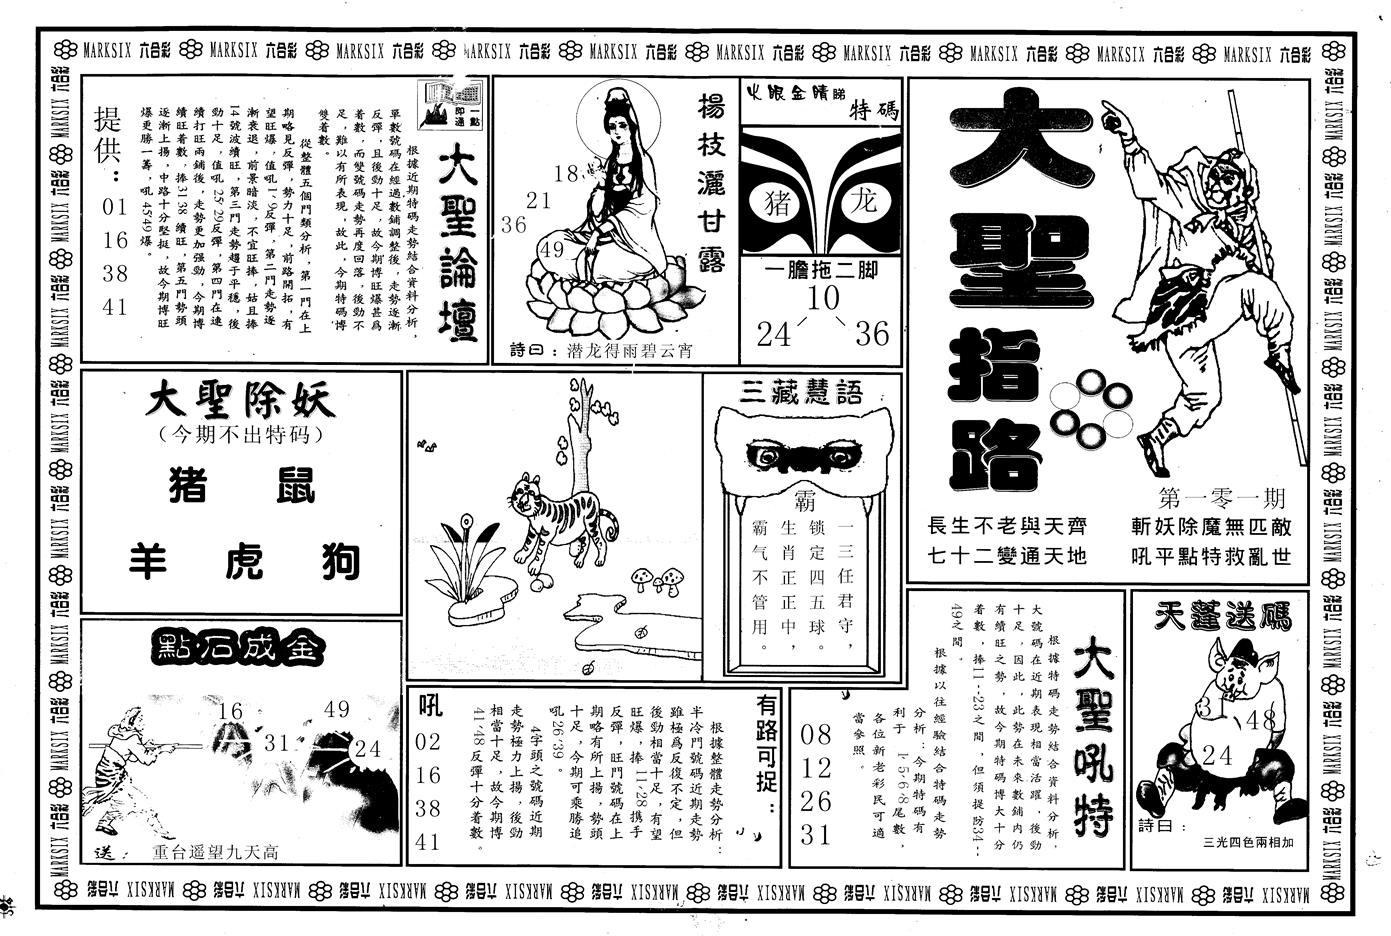 MARKSIX 六合彩 MARKSIX 六合彩 MARKSIX 六合彩 MARKSIX 六合彩 MARKSIX 六合彩 MARKSIX 六合彩 MARKSIX 六合彩 MARKSIX 六合彩 MARKSIX 六合彩 MARKSIX 六合彩
一點即通
大聖論壇
根據近期特碼走勢結合資料分析，
單數號碼在經過數鋪調整後，走勢逐漸
反彈，且後勁十足，故今期博旺爆甚爲
着數，而雙號碼走勢再度回落，後勁不
足，難以有所表現，故此，今期特碼博
雙着數。
從整體五個門類分析，第一門在上
期略見反彈，勢力十足，前路開拓，有
望旺爆，值吼1、9反彈，第二門走勢逐
漸衰退，前景暗淡，不宜旺捧，姑且捧
14號波續旺，第三門走勢趨于平穩，後
勁十足，值吼25·29反彈，第四門在連
續打旺兩鋪後，走勢更加强勁，今期博
續旺着數，捧31·38續旺，第五門勢頭
逐漸上揚，中路十分堅挺，故今期博旺
爆更勝一籌，吼45·49爆。
提供：
01
16
38
41
楊枝灑甘露
18
21
36
49
詩曰：潜龙得雨碧云宵
火眼金睛睇
特碼
猪 龙
一膽拖二脚
10
24 36
大聖指路
第一零一期
長生不老與天齊 斬妖除魔無匹敵
七十二變通天地 吼平點特救亂世
大聖除妖
（今期不出特码）
猪 鼠
羊 虎 狗
三藏慧語
霸
一三任君守，
锁定四五球。
生肖正正中，
霸气不管用。
點石成金
16
49
31
24
送： 重台遥望九天高
有路可捉：
根據整體走勢分析：
半冷門號碼近期走勢
雖極爲反復不定，但
後勁相當十足，有望
旺爆，捧11·28携手
反彈，旺門號碼在上
期略有所上揚，勢頭
十足，今期可乘勝追
吼26·39。
4字頭之號碼近期
走勢極力上揚，後勁
相當十足，故今期博
41·48反彈十分着數。
吼
02
16
38
41
大聖吼特
根據特碼走勢結合資料分析，
大號碼在近期表現相當活躍，後勁
十足，因此，此勢在未來數鋪内仍
有續旺之勢，故今期特碼博大十分
着數，捧11--23之間，但須提防34--
49之間。
根據以往經驗結合特碼走勢
分析：今期特碼有
利于1·5·6·8尾數，
各位新老彩民可適
當參照。
08
12
26
31
天蓬送碼
3
48
24
詩曰：
三光四色兩相加
MARKSIX 六合彩 MARKSIX 六合彩 MARKSIX 六合彩 MARKSIX 六合彩 MARKSIX 六合彩 MARKSIX 六合彩 MARKSIX 六合彩 MARKSIX 六合彩 MARKSIX 六合彩 MARKSIX 六合彩